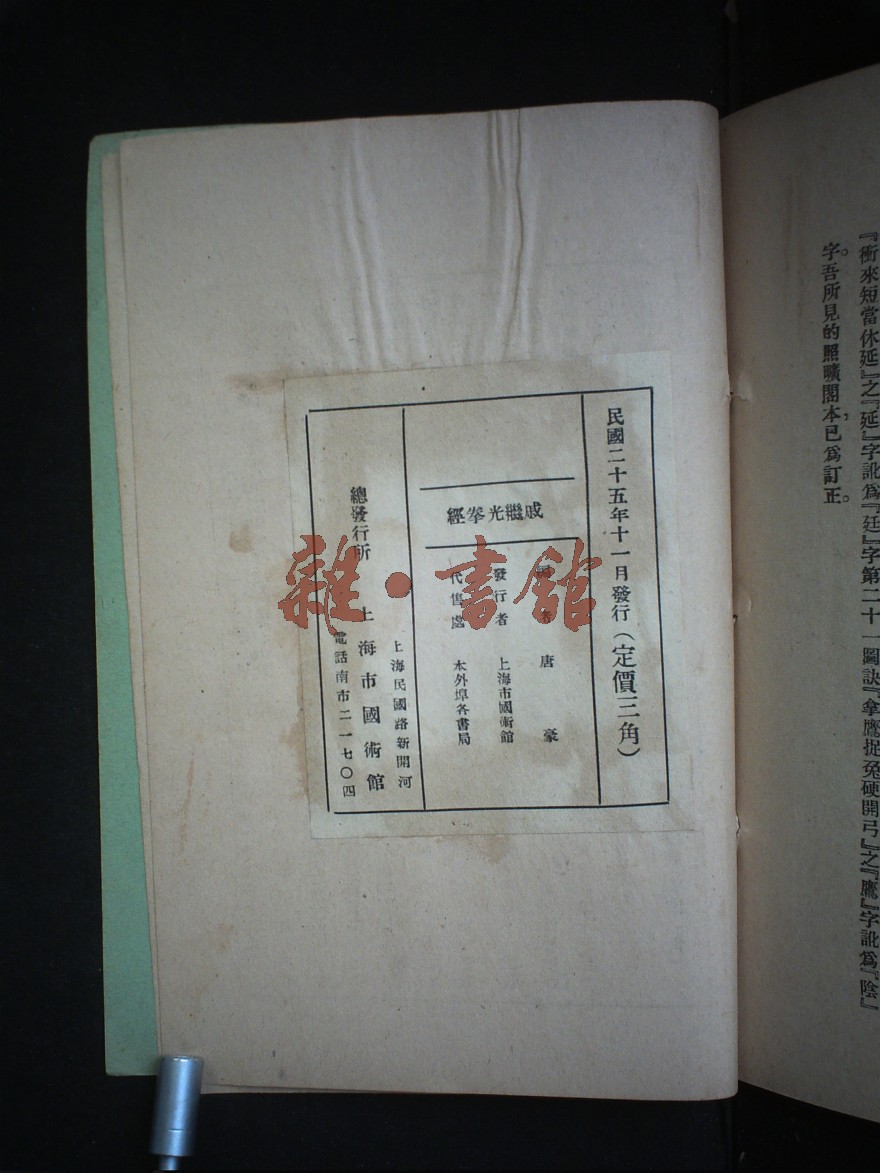 『衝來短當休延』之『延』字訛爲『廷』字第二十一圖訣『拿鷹捉兔硬開弓』之『鷹』字訛爲『陰』
字。吾所見的照曠閣本，已爲訂正。
民國二十五年十一月發行（定價三角）
戚繼光拳經
者 唐豪
發行者 上海市國術館
代售處 本外埠各書局
總發行所 上海市國術館
上海民國路新開河
電話南市二一七〇四
雜·書館